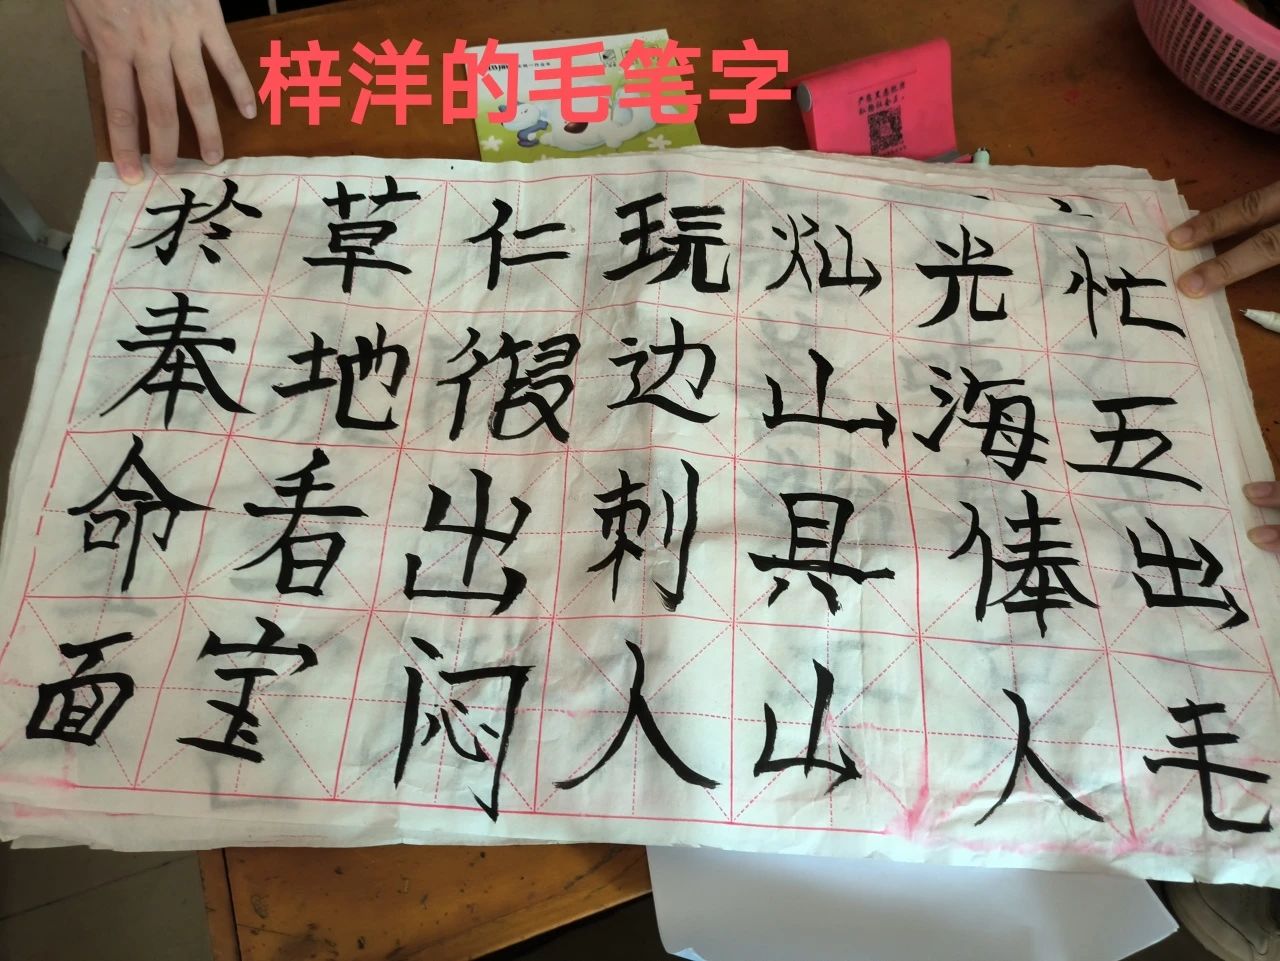 梓洋的毛笔字
於草仁玩灿光忙
奉地边山海五
命看出刺具俸出
面宝闷人山人毛